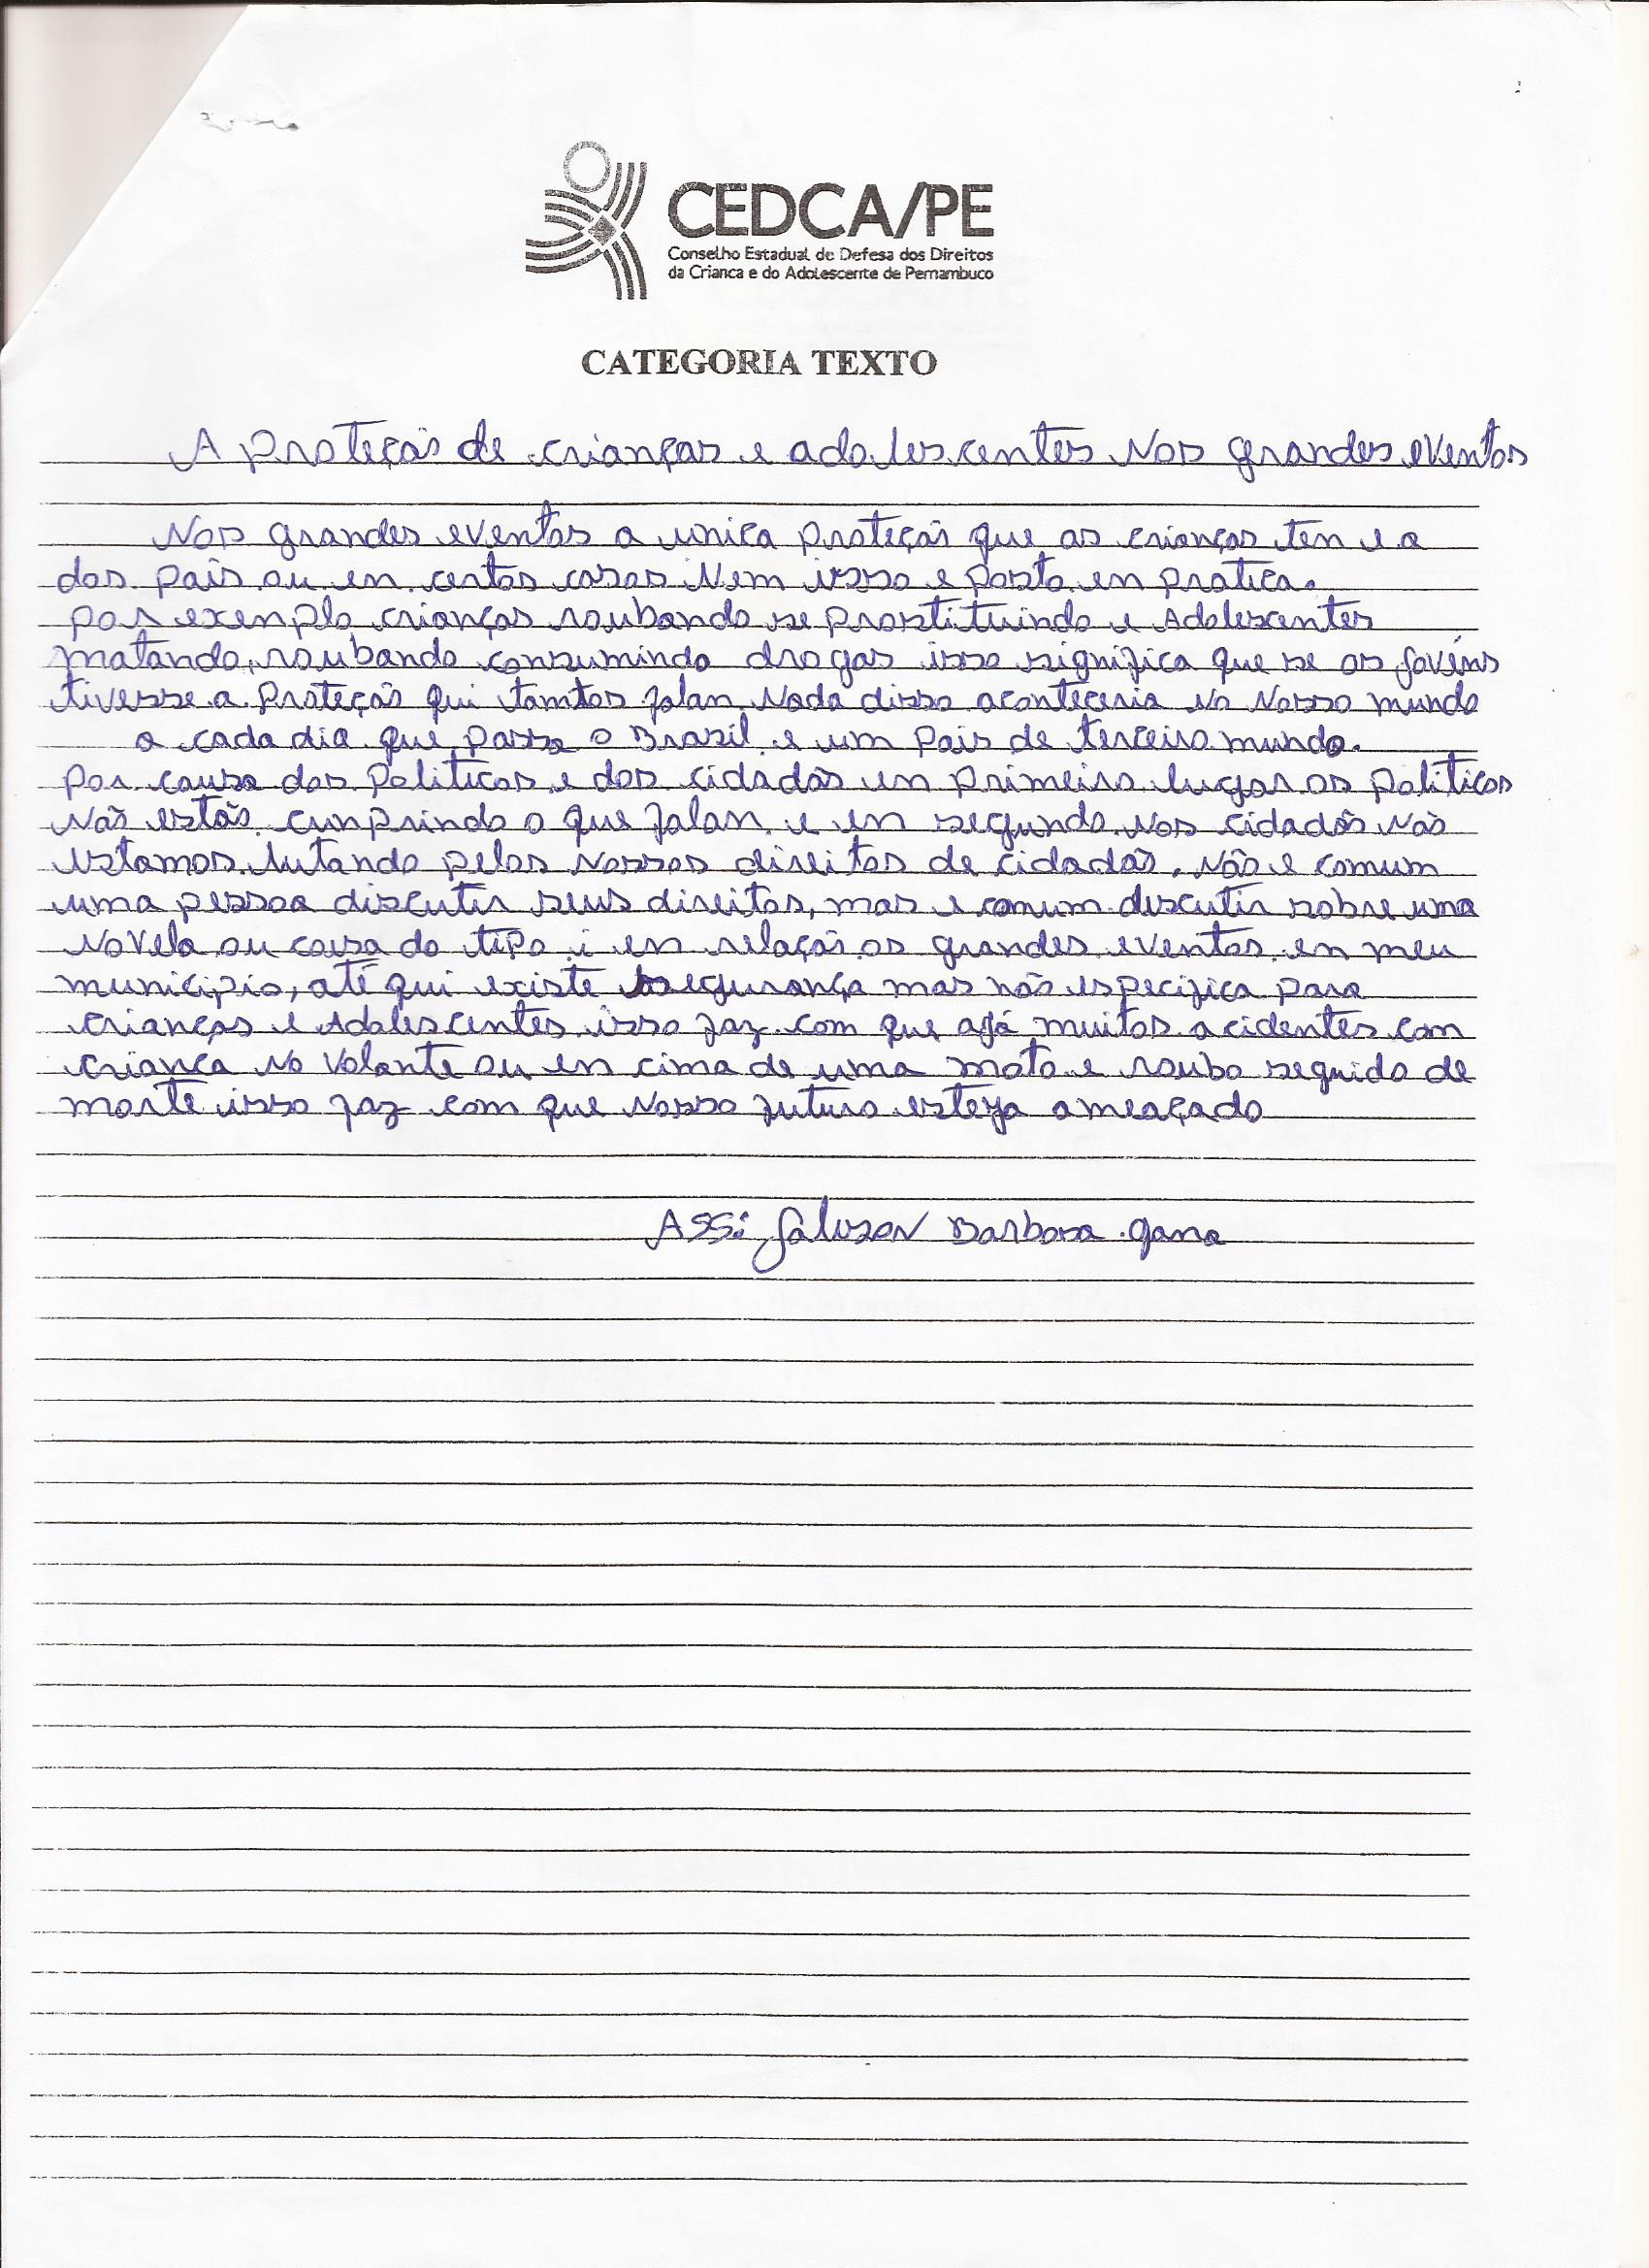 CEDCA/PE
Conselho Estadual de Defesa dos Direitos
da Crianca e do Adolescente de Pernambuco
CATEGORIA TEXTO
A proteção de crianças e adolescentes Nos grandes eventos
Nos grandes eventos a unica proteção que as crianças ten e a
dos pais ou en certos casos Nem isso e posto en pratica.
por exenplo crianças roubando se prostituindo e Adolescentes
matando, roubando consumindo drogas isso significa que se os jovéns
tivesse a proteção qui tamtos falan Nada disso aconteceria No Nosso mundo
a cada dia que passa o Brasil e um pais de terceiro mundo.
por causa dos politicos e dos cidadãos en primeiro lugar os politicos
Não estão cunprindo o que falan e en segundo Nos cidadãos Não
estamos lutando pelos Nossos direitos de cidadão, Não e comum
uma pessoa discutir seus direitos, mas e comum discutir sobre uma
Novela ou coisa do tipo i en relação os grandes eventos en meu
municipio, até qui existe segurança mas não especifica para
crianças e Adolescentes isso faz com que ajá muitos acidentes com
criança No volante ou en cima de uma moto e roubo seguido de
morte isso faz com que Nosso futuro esteja ameaçado
ASS: Barbosa